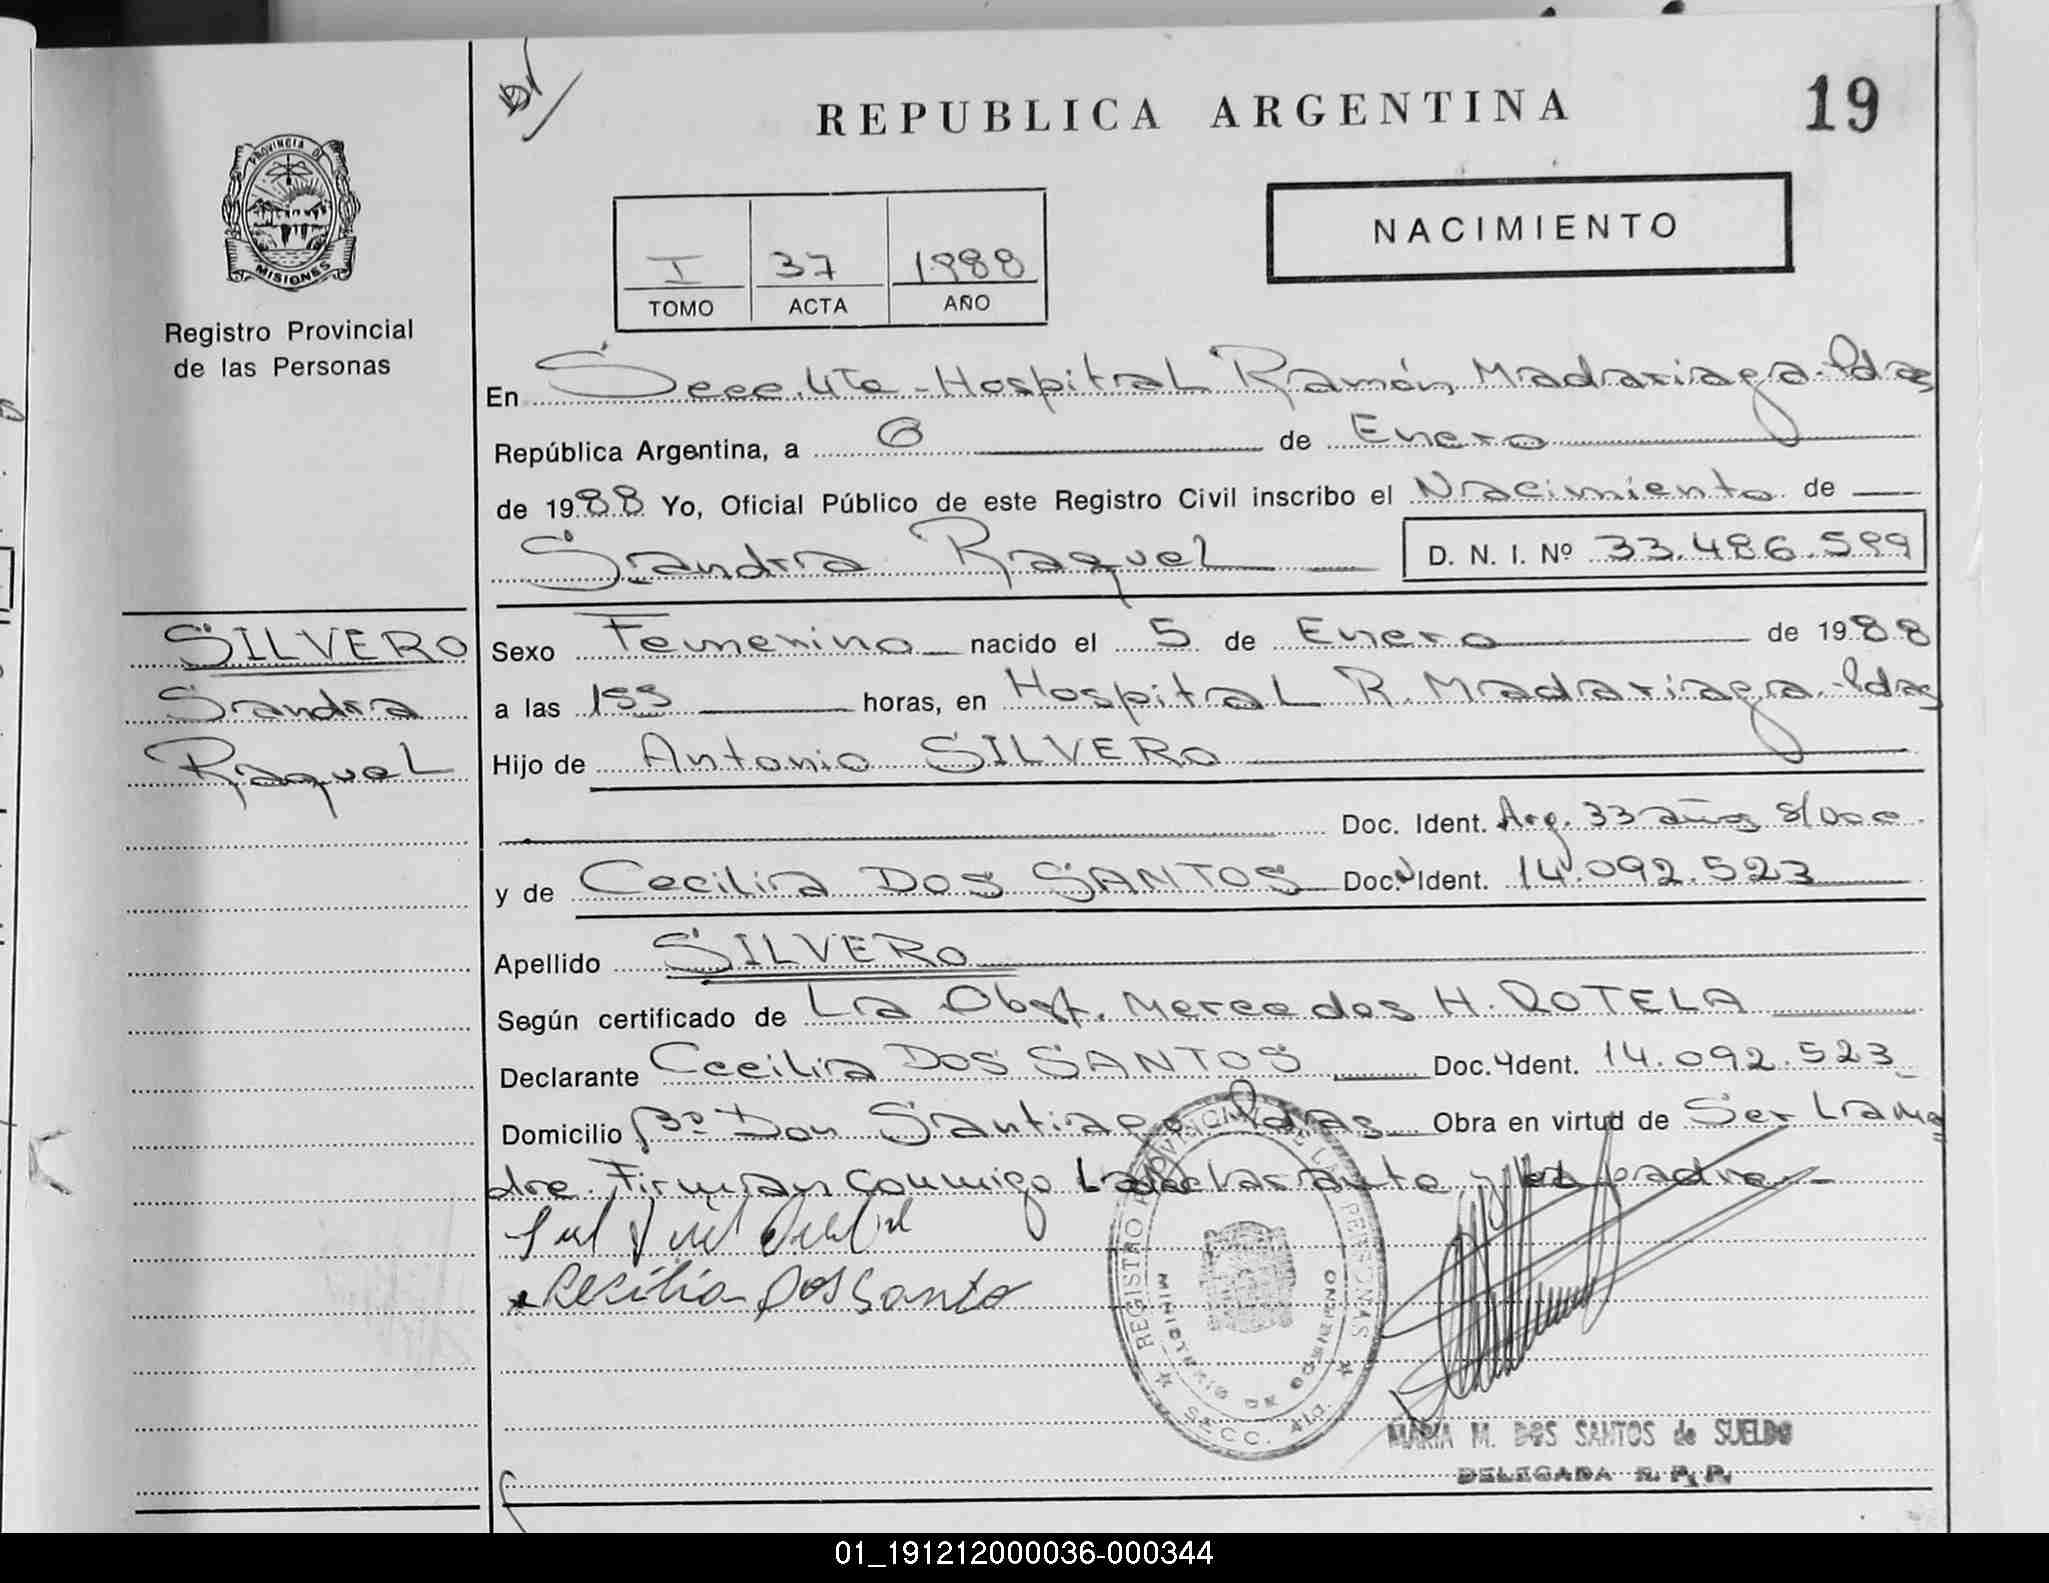 REPUBLICA ARGENTINA
19
PROVINCIA DE
MISIONES
Registro Provincial
de las Personas
NACIMIENTO
I 37 1988
TOMO ACTA AÑO
En Secc. 4ta - Hospital Ramón Madariaga - Pdas
República Argentina, a 6 de Enero
de 1988 Yo, Oficial Público de este Registro Civil inscribo el Nacimiento de
Sandra Raquel D. N. I. Nº 33.486.599
SILVERO
Sandra
Raquel
Sexo Femenino nacido el 5 de Enero de 1988
a las 155 horas, en Hospital R. Madariaga - Pdas
Hijo de Antonio SILVERO
Doc. Ident. Arg. 33 años S/Doc.
y de Cecilia DOS SANTOS Doc. Ident. 14.092.523
Apellido SILVERO
Según certificado de La Obst. Mercedes H. ROTELA
Declarante Cecilia DOS SANTOS Doc. Ident. 14.092.523
Domicilio Bº Don Santiago Pdas Obra en virtud de Ser La Ma
dre. Firman conmigo La Declarante y el padre
Cecilia Dos Santo
REGISTRO PROVINCIAL DE LAS PERSONAS
MINISTERIO DE GOBIERNO
SECC. 4ta
MARIA M. DOS SANTOS de SUELDO
DELEGADA R. P. P.
01_191212000036-000344